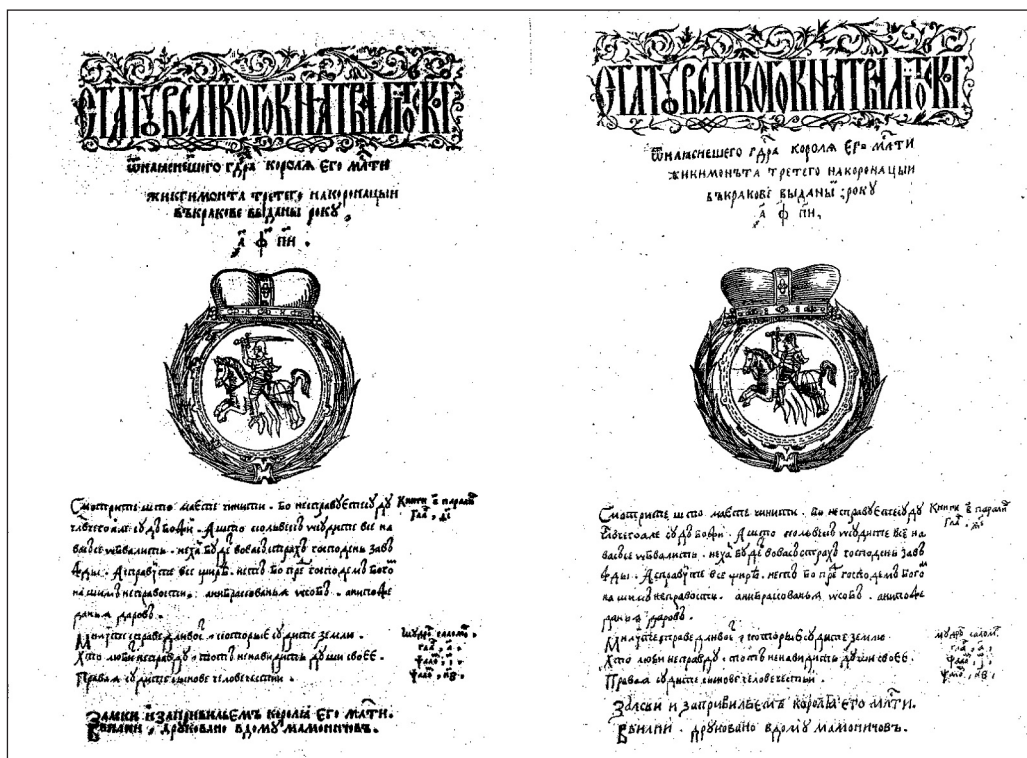 СТАТꙋ ВЕЛИКОГО КНꙗТВА ЛИТОСКГ
ѿ наꙗснешого гдра королꙗ его млти
жикгимонта третего на коронацыи
въ кракове выданы року,
а ф пи.
Смотрите што маете чинити. бо не справуете суду
чловечого але суд божи. А што кольвек осудите все на
вас се обвалить. неха будет во вас страх господень завъ
жды. А справуйте все щире. несть бо пре господем Бого
нашим несправости. ани браковання особ. ани пожа
данья даров.
Книги в парали
гла, ѳі
Милуйте справедливо, которые судите землю.
Хто люби несправду, тот ненавидить души своее.
Правая судите сынове человечестии.
мудро саломо,
Замки и за привильемъ королꙗ его млти.
В Вилни, друковано в дому Мамоничовъ.
СТАТꙋ ВЕЛИКОГО КНꙗТВА ЛИТОСКГ
ѿ наꙗснешего гдра королꙗ его млти
жикимонъта третего на коронацыи
въ кракове выданы; року
а ф пи,
Смотрите што маете чинити. бо не справуете суду
чловечого але суд божи. А што кольвек осудите все на
вас се обвалить. неха буде во вас страх господень завъ
жды. А справуйте все щире. несть бо пре господем Бого
нашим несправости. ани бракованья особ. ани пожа
данья даров.
Книги в парали
Милуйте справедливо, которые судите землю.
Хто люби несправду, тот ненавидить души своее.
Правая судите сынове человечестии.
мудро саломо.
и за привильемъ королꙗ его млти.
В Вилни. друковано в дому Мамоничовъ.